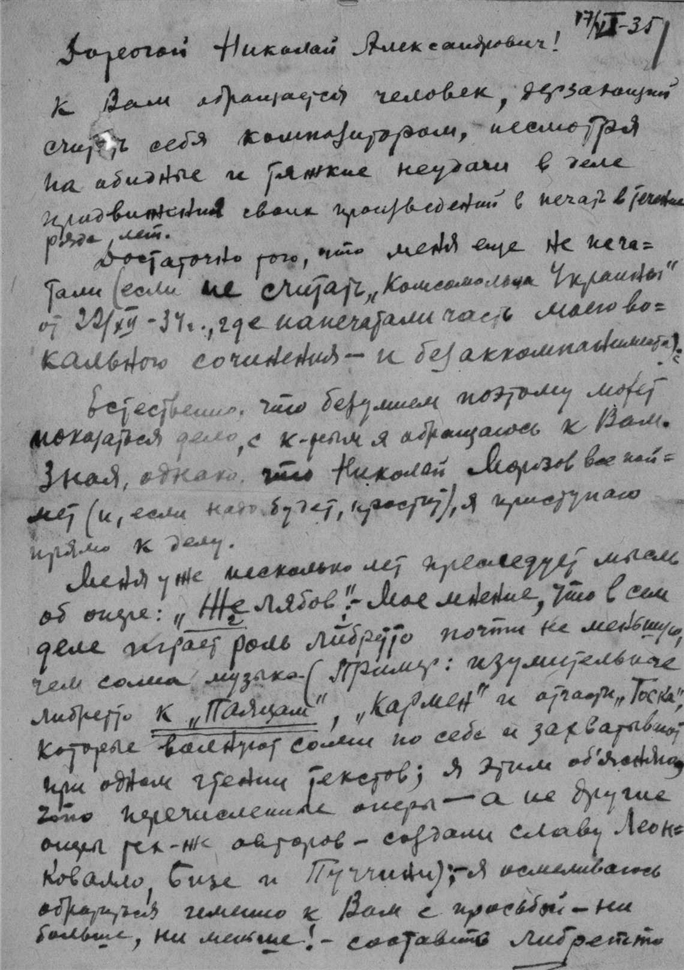 17/VII-35
Дорогой Николай Александрович!
К Вам обращается человек, дерзающий
считать себя композитором, несмотря
на обидные и тяжкие неудачи в деле
продвижения своих произведений в печать в течение
ряда лет.
Достаточно того, что меня еще не печа=
тали (если не считать „Комсомольца Украины"
от 22/XII-34г., где напечатали часть моего во=
кального сочинения — и без аккомпанимента).
Естественно, что безумием поэтому может
показаться дело, с к-рым я обращаюсь к Вам.
Зная, однако, что Николай Морозов все пой=
мет (и, если надо будет, простит), я приступаю
прямо к делу.
Меня уже несколько лет преследует мысль
об опере: „Желябов". Мое мнение, что в сем
деле играет роль либретто почти не меньшую,
чем сама музыка (Пример: изумительные
либретто к „Паяцам", „Кармен" и отчасти „Тоска",
которые волнуют сами по себе и захватывают
при одном чтении текстов; я этим об'ясняю,
что перечисленные оперы — а не другие
оперы тех-же авторов — создали славу Леон=
ковалло, Бизе и Пуччини); я осмеливаюсь
обратиться именно к Вам с просьбой — ни
больше, ни меньше! — составить либретто